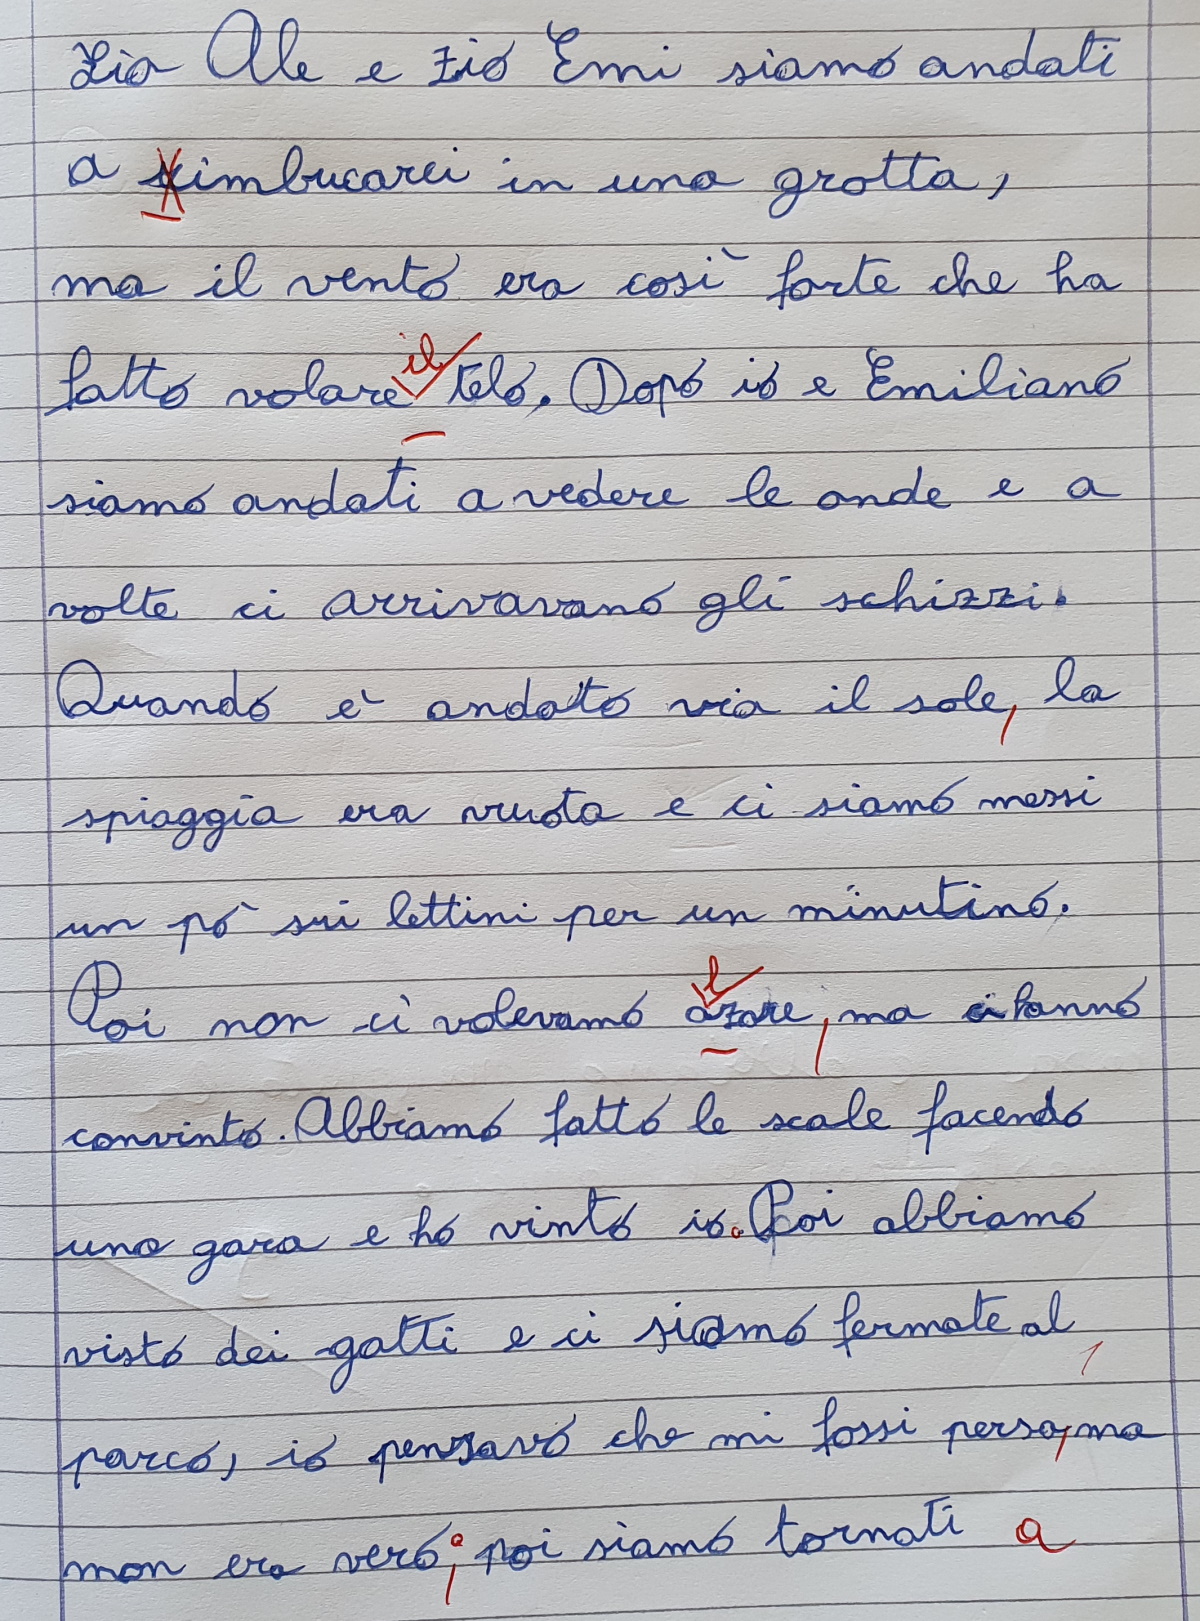 zia Ale e zio Emi siamo andati
a ximbucarci in una grotta,
ma il vento era così forte che ha
fatto volare il telo. Dopo io e Emiliano
siamo andati a vedere le onde e a
volte ci arrivavano gli schizzi.
Quando è andato via il sole, la
spiaggia era vuota e ci siamo messi
un pò sui lettini per un minutino.
Poi non ci volevamo alzare, ma ci hanno
convinto. Abbiamo fatto le scale facendo
una gara e ho vinto io. Poi abbiamo
visto dei gatti e ci siamo fermate al
parco, io pensavo che mi fossi persa, ma
non era vero; poi siamo tornati a